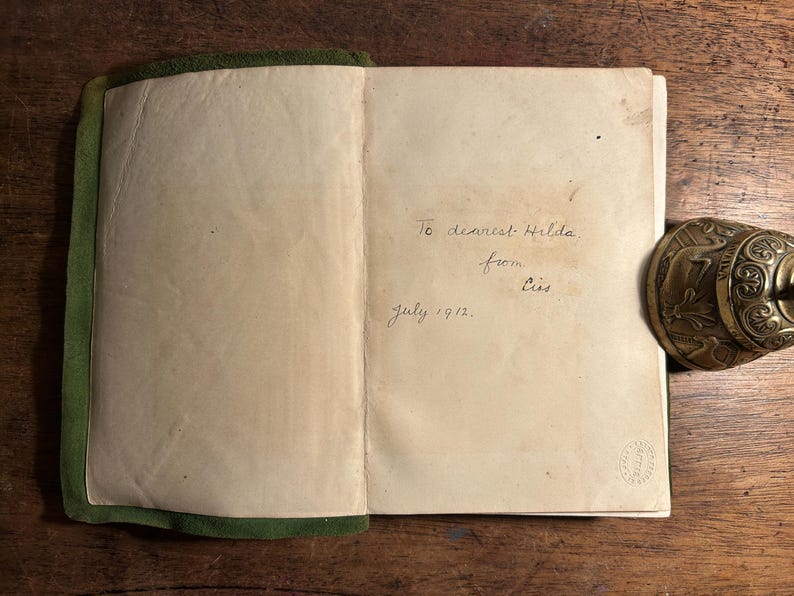 To dearest Hilda.
from
Ciss
July 1912.